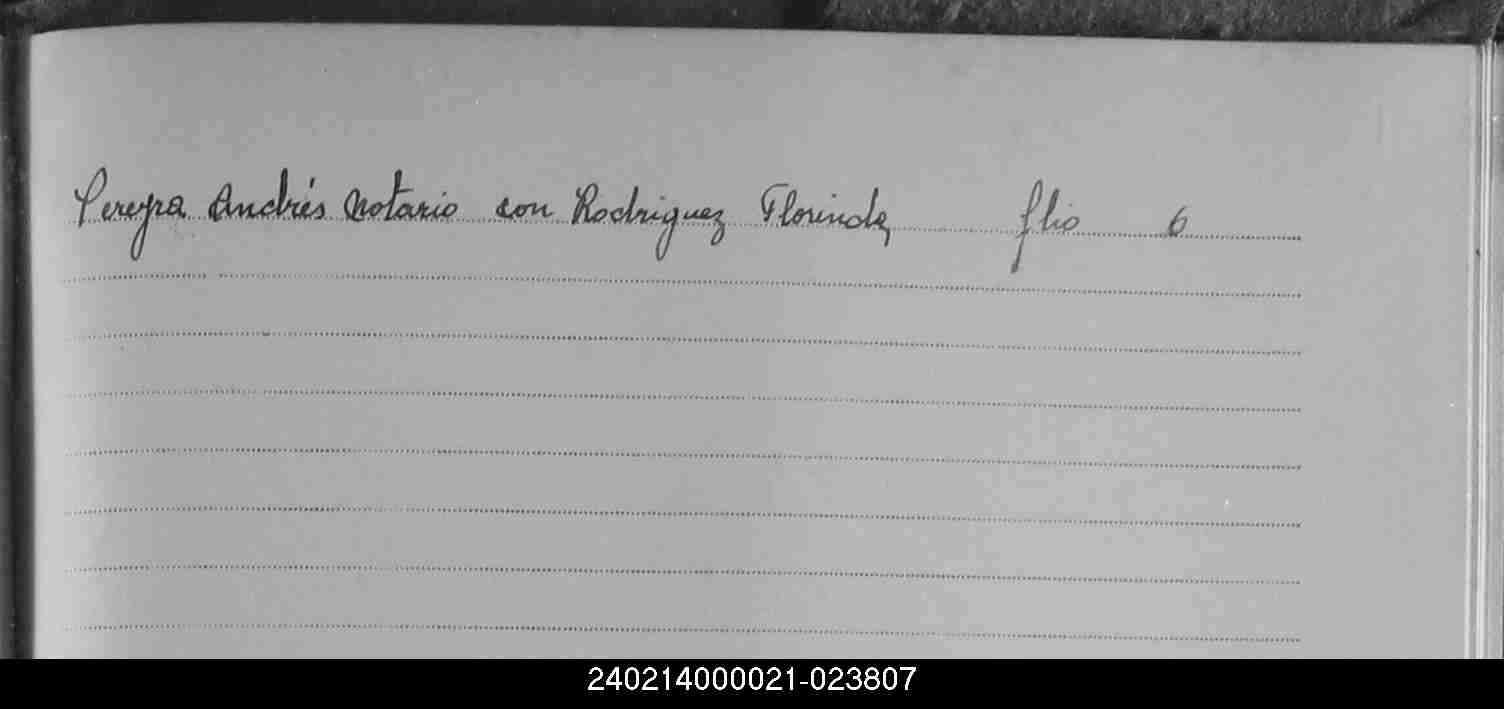 Pereyra Andrés Notario con Rodriguez Florinda flio 6
240214000021-023807